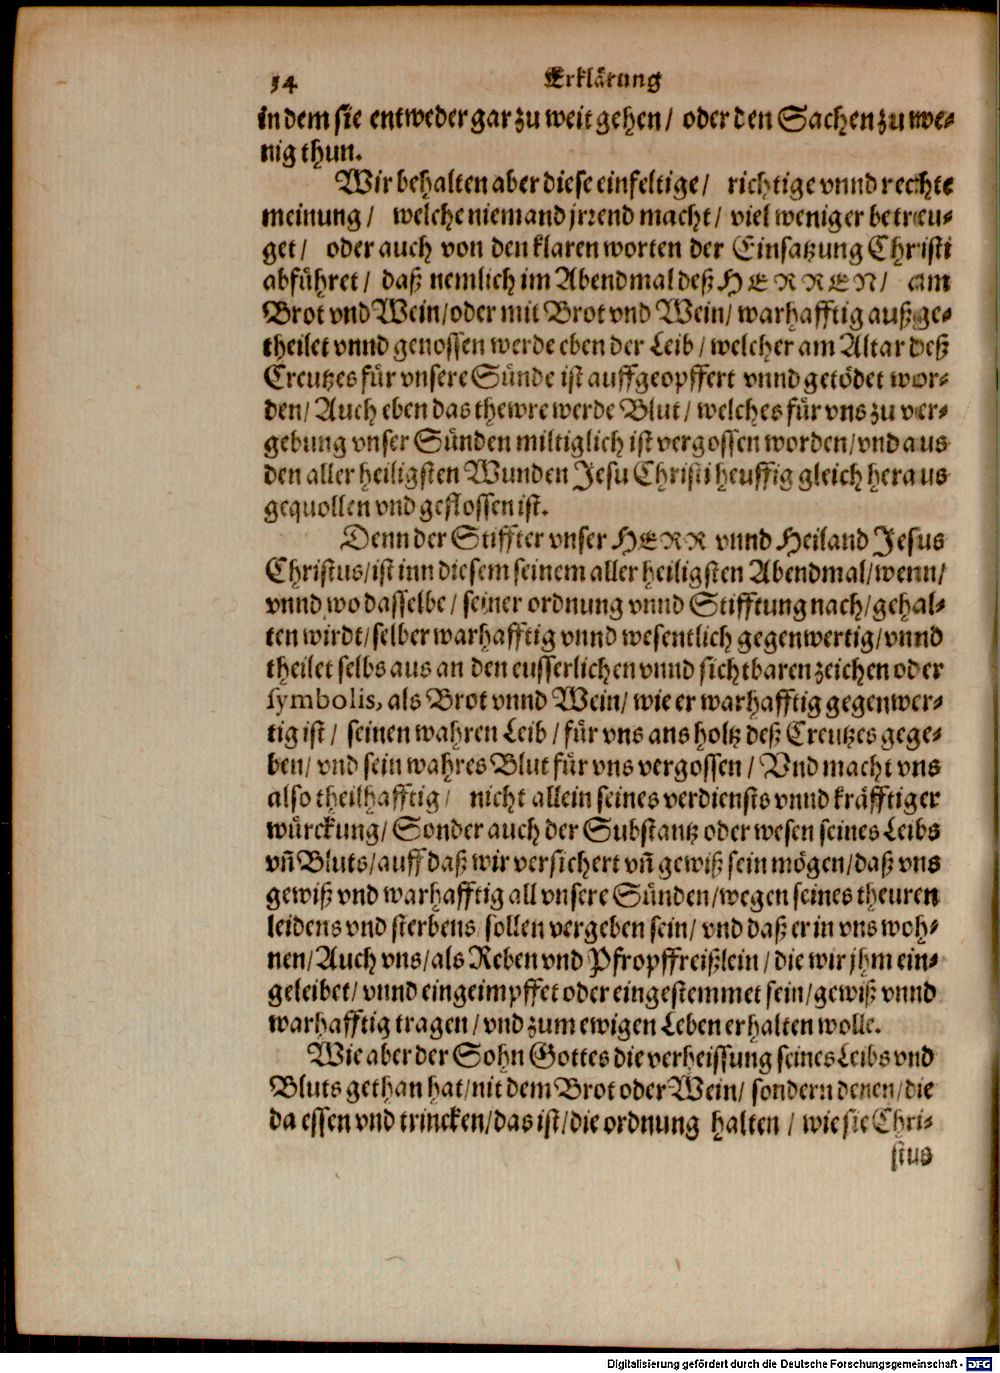 14 Erklärung
in dem sie entweder gar zu weit gehen/ oder den Sachen zu we-
nig thun.
Wir behalten aber diese einfeltige/ richtige vnnd rechte
meinung/ welche niemand jrrend macht/ viel weniger betreu-
get/ oder auch von den klaren worten der Einsatzung Christi
abführet/ daß nemlich im Abendmal deß HERREN/ am
Brot vnd Wein/oder mit Brot vnd Wein/ warhafftig außge-
theilet vnnd genossen werde eben der Leib/ welcher am Altar deß
Creutzes für vnsere Sünde ist auffgeopffert vnnd getödet wor-
den/ Auch eben das thewre werde Blut/ welches für vns zu ver-
gebung vnser Sünden miltiglich ist vergossen worden/vnd aus
den aller heiligsten Wunden Jesu Christi heuffig gleich heraus
gequollen vnd geflossen ist.
Denn der Stiffter vnser HERR vnnd Heiland Jesus
Christus/ist inn diesem seinem aller heiligsten Abendmal/wenn/
vnnd wo dasselbe/ seiner ordnung vnnd Stifftung nach/gehal-
ten wirdt/selber warhafftig vnnd wesentlich gegenwertig/vnnd
theilet selbs aus an den eusserlichen vnnd sichtbaren zeichen oder
symbolis, als Brot vnnd Wein/ wie er warhafftig gegenwer-
tig ist/ seinen wahren Leib/ für vns ans holtz deß Creutzes gege-
ben/ vnd sein wahres Blut für vns vergossen/ Vnd macht vns
also theilhafftig/ nicht allein seines verdiensts vnnd kräfftiger
würckung/ Sonder auch der Substantz oder wesen seines Leibs
vñ Bluts/auff daß wir versichert vñ gewiß sein mögen/daß vns
gewiß vnd warhafftig all vnsere Sünden/wegen seines theuren
leidens vnd sterbens sollen vergeben sein/ vnd daß er in vns woh-
nen/Auch vns/als Reben vnd Pfropffreißlein/die wir jhm ein-
geleibet/ vnnd eingeimpffet oder eingestemmet sein/gewiß vnnd
warhafftig tragen/vnd zum ewigen Leben erhalten wolle.
Wie aber der Sohn Gottes die verheissung seines Leibs vnd
Bluts gethan hat/nit dem Brot oder Wein/ sondern denen/die
da essen vnd trincken/das ist/die ordnung halten/ wie sie Chri-
stus
Digitalisierung gefördert durch die Deutsche Forschungsgemeinschaft - DFG